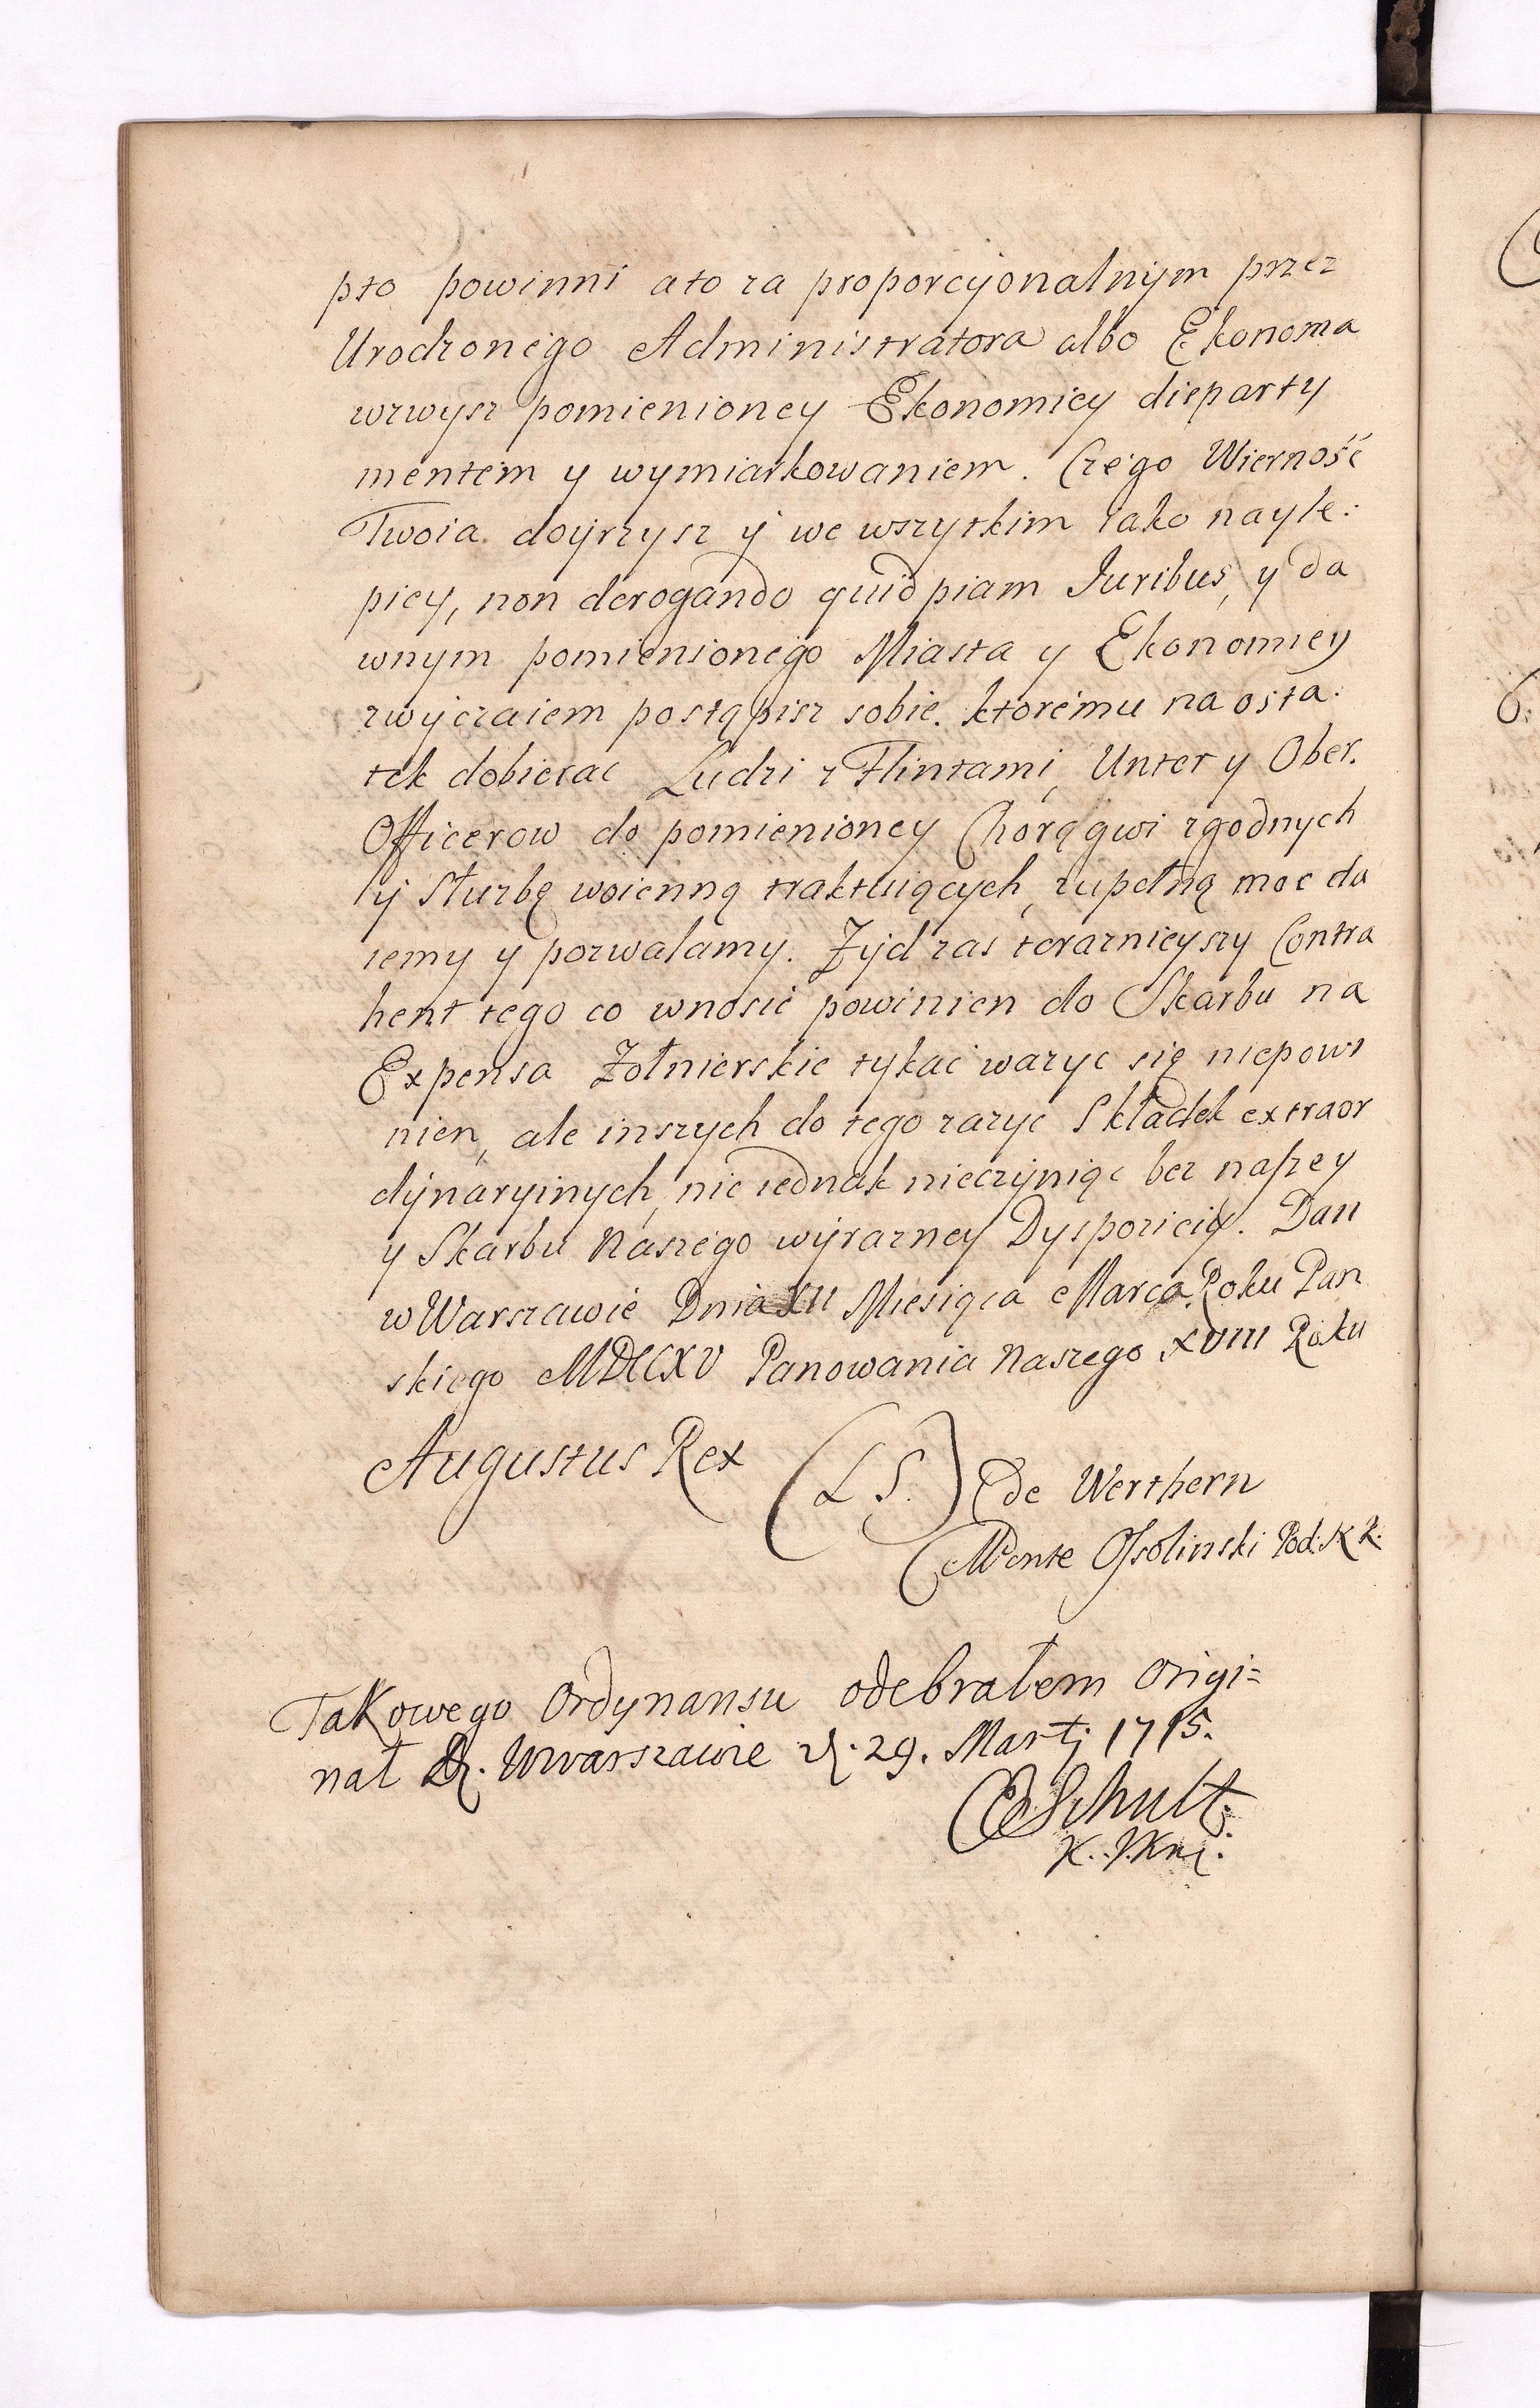 pto powinni ato za proporcyonalnym przez
Urodzonego Administratora albo Ekonoma
wzwysz pomienioney Ekonomicy dieparty
mentem y wymiarkowaniem. Czego Wierność
Twoia doyrzysz y we wszytkim iako nayle:
piey, non derogando quid piam Juribus, y da
wnym pomienionego Miasta y Ekonomiey
zwyczaiem postąpisz sobie. ktoremu na osta.
tek dobierac Ludzi z Flintami, Unter y Ober.
Officerow do pomienioney Chorągwi zgodnych
y Służbę woienną traktuiących, zupełną moc da
iemy y pozwalamy. Żyd zas teraznieyszy Contra
hent tego co wnosić powinien do Skarbu na
Expensa Żołnierskie tykać wazyc się niepowi
nien, ale inszych do tego zazyc Składek extraor
dynaryinych, nic iednak nieczyniąc bez naszey
y Skarbu Naszego wyrazney Dyspozicij. Dan
w Warszawie Dnia XII Miesiąca Marca Roku Pan
skiego MDCCXV Panowania Naszego XVIII Roku
Augustus Rex (L S.) de Werthern
Mente Ossolinski Pod: K K.
Takowego Ordynansu odebrałem Origi=
nał Wwarszawie d. 29. Martj 1715.
Schult.